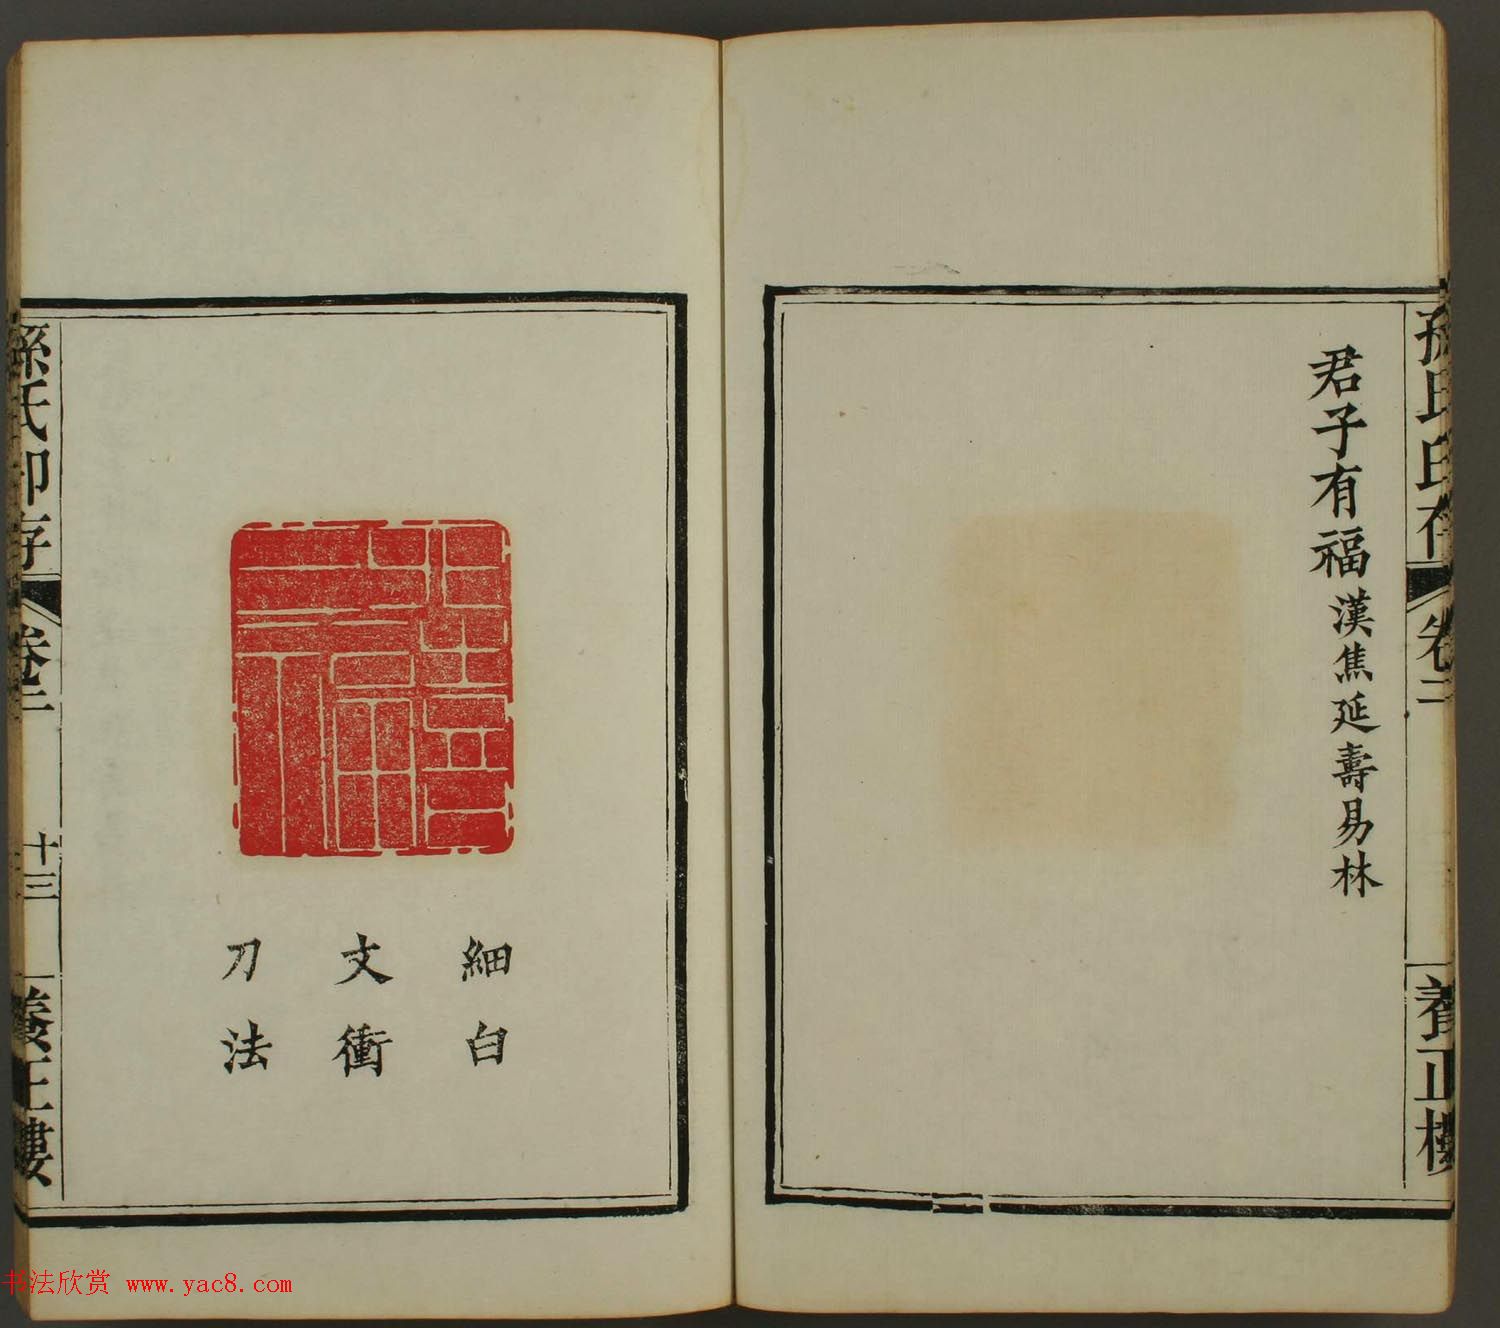 孫氏印存 卷二 養正樓
君子有福 漢焦延壽易林
細白
文衝
刀法
孫氏印存 卷二 十三 養正樓
书法欣赏 www.yac8.com